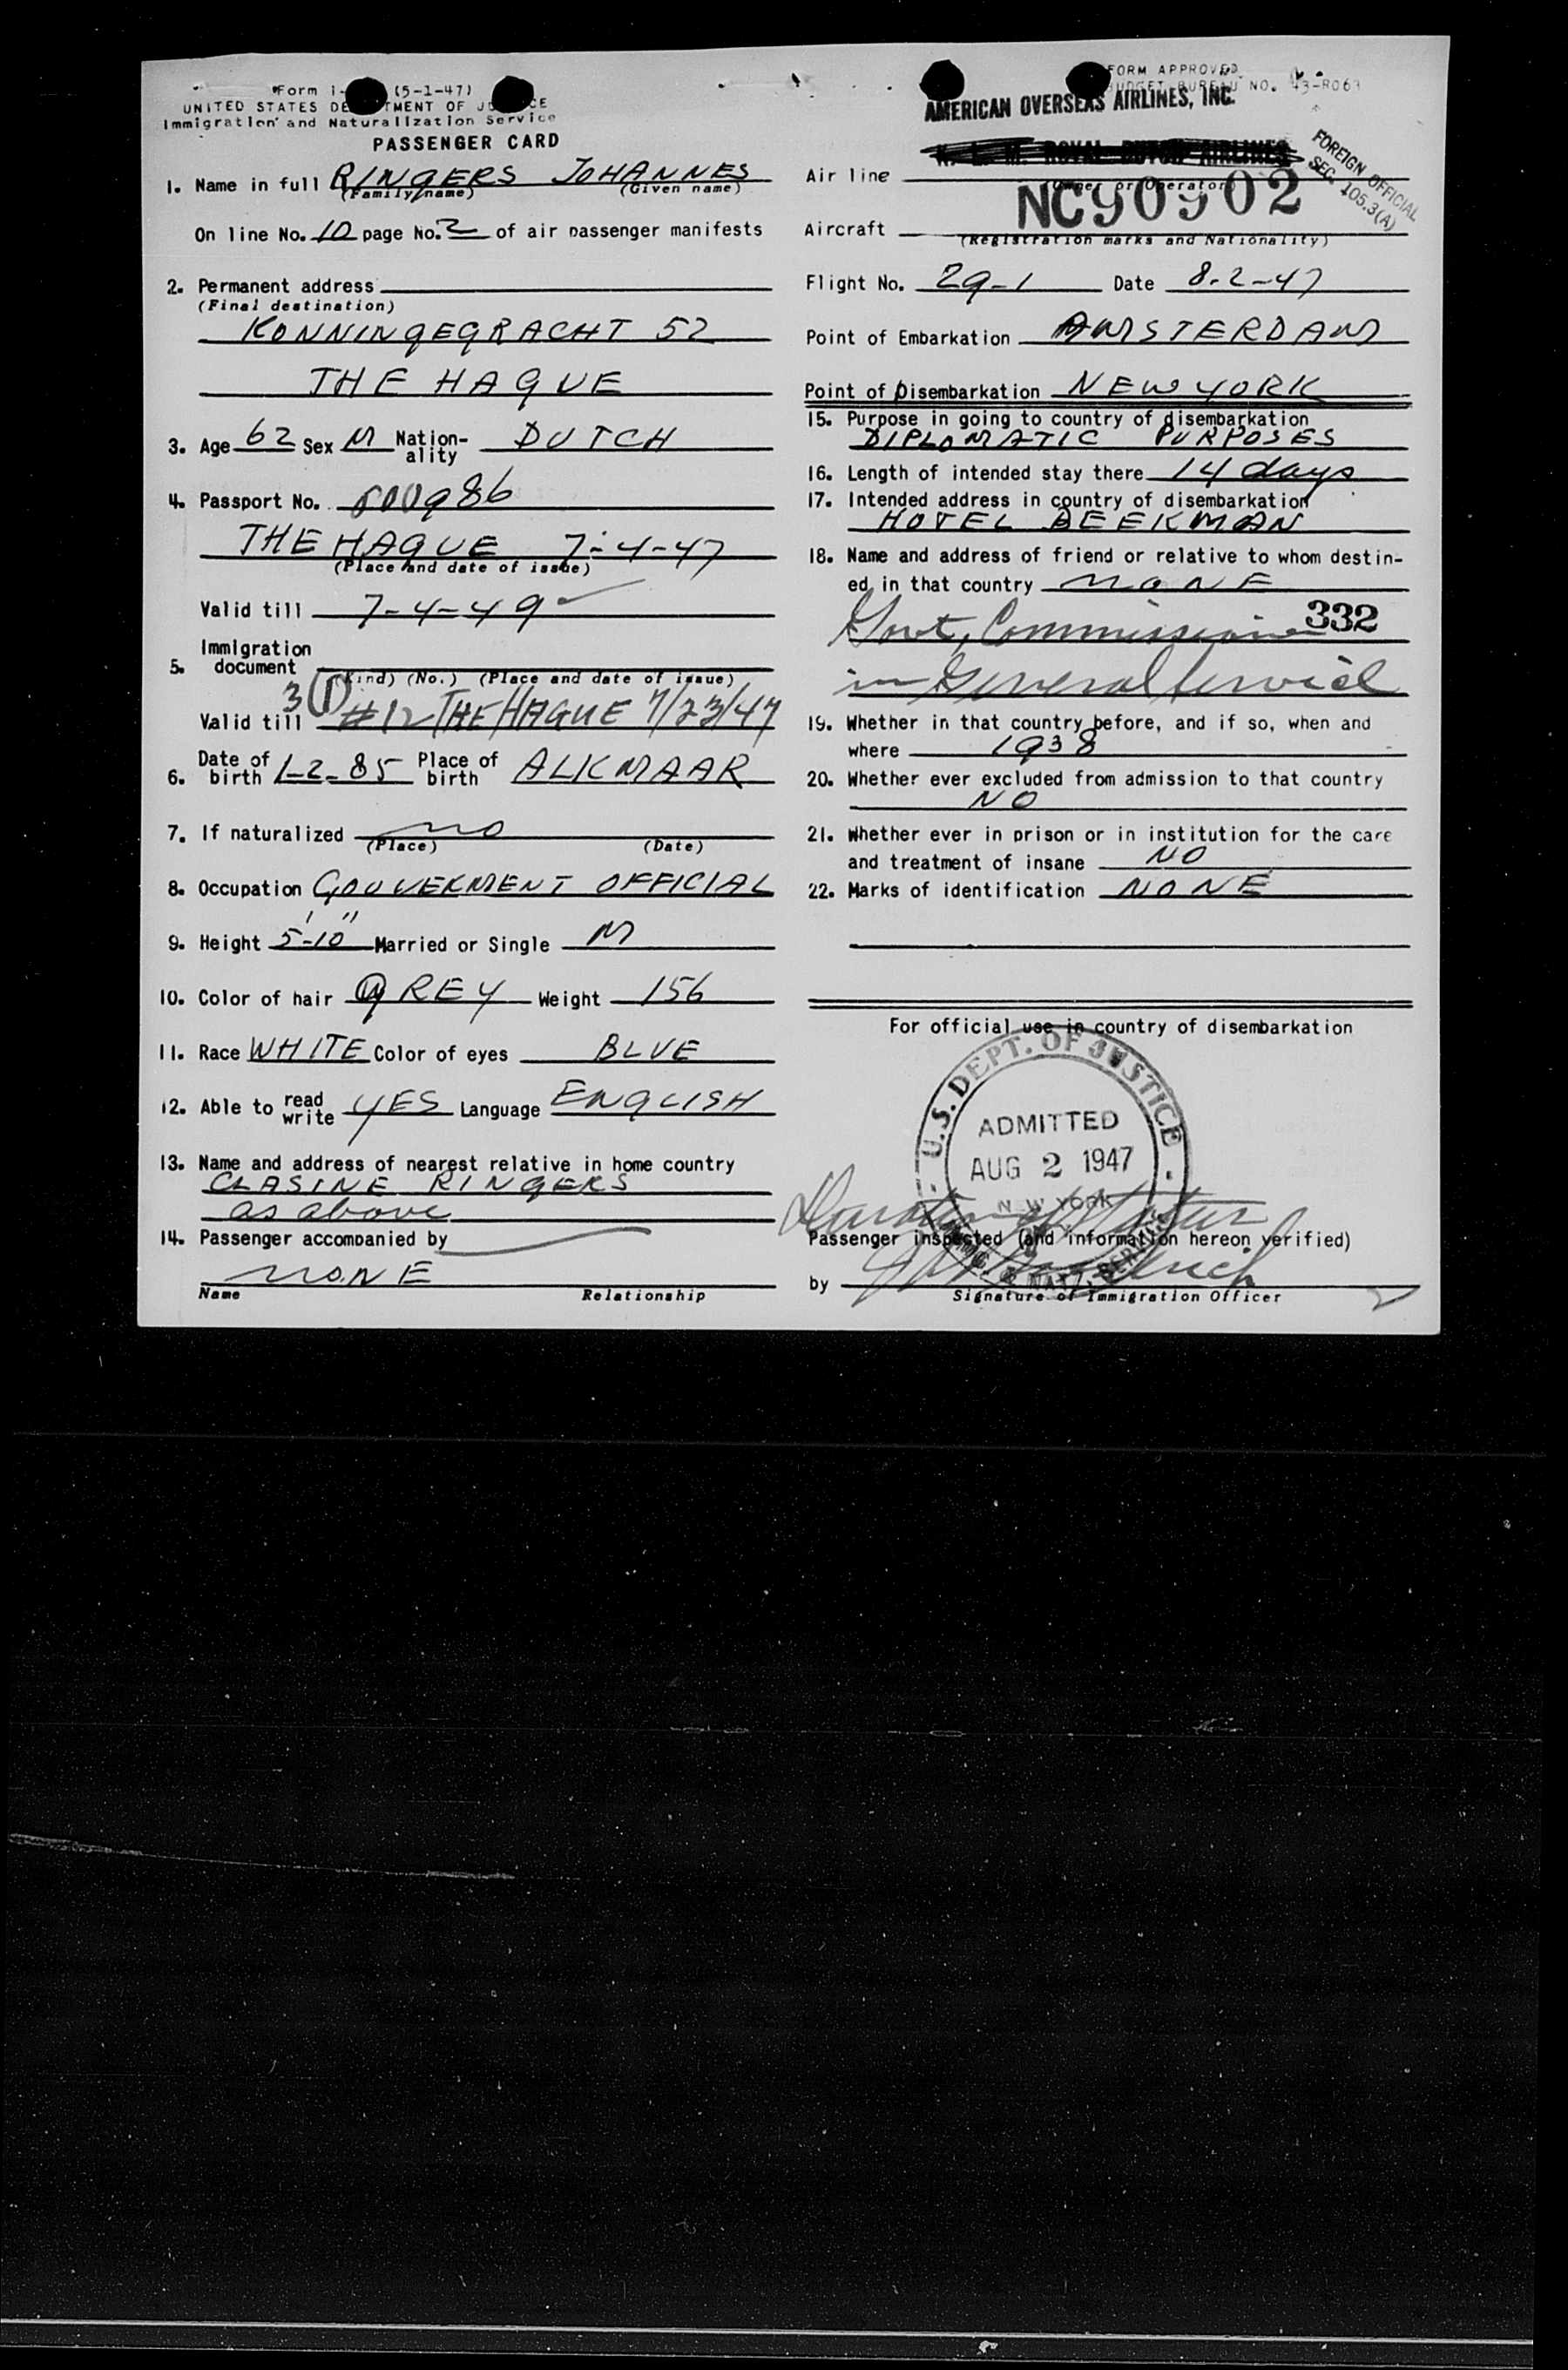 Form I- (5-1-47)
UNITED STATES DE TMENT OF JU CE
Immigration and Naturalization Service
PASSENGER CARD
1. Name in full RINGERS JOHANNES
(Family name) (Given name)
On line No. 10 page No. 2 of air passenger manifests
2. Permanent address
(Final destination)
KONNINGEGRACHT 52
THE HAGUE
3. Age 62 Sex M Nation-ality DUTCH
4. Passport No. 986
THE HAGUE 7-4-47
(Place and date of issue)
Valid till 7-4-49
5. Immigration document
(Kind) (No.) (Place and date of issue)
3 (1)
Valid till #12 THE HAGUE 7/23/47
6. Date of birth 1-2-85 Place of birth ALKMAAR
7. If naturalized no
(Place) (Date)
8. Occupation GOUVERMENT OFFICIAL
9. Height 5'-10" Married or Single M
10. Color of hair GREY Weight 156
11. Race WHITE Color of eyes BLUE
12. Able to read write YES Language ENGLISH
13. Name and address of nearest relative in home country
CLASINE RINGERS
as above
14. Passenger accompanied by
NONE
Name Relationship
FORM APPROVED
BUDGET BUREAU NO. 43-R063
AMERICAN OVERSEAS AIRLINES, INC.
K. L. M. ROYAL DUTCH AIRLINES
Air line
(Owner or Operator)
FOREIGN OFFICIAL
SEC. 105.3(A)
Aircraft NC90902
(Registration marks and Nationality)
Flight No. 29-1 Date 8-2-47
Point of Embarkation AMSTERDAM
Point of Disembarkation NEW YORK
15. Purpose in going to country of disembarkation
DIPLOMATIC PURPOSES
16. Length of intended stay there 14 days
17. Intended address in country of disembarkation
HOTEL BEEKMAN
18. Name and address of friend or relative to whom destin-
ed in that country NONE
332
Govt, Commissioner
in General Service
19. Whether in that country before, and if so, when and
where 1938
20. Whether ever excluded from admission to that country
NO
21. Whether ever in prison or in institution for the care
and treatment of insane NO
22. Marks of identification NONE
For official use in country of disembarkation
U.S. DEPT. OF JUSTICE
ADMITTED
AUG 2 1947
NEW YORK
IMMIG. & NATZ. SERVICE
Duration of Status
Passenger inspected (and information hereon verified)
by
Signature of Immigration Officer